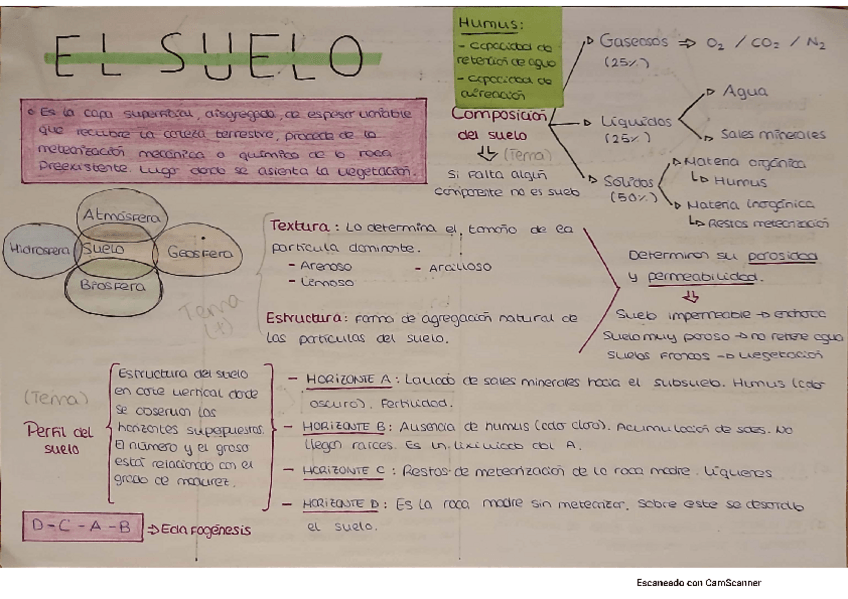 EL SUELO
Humus:
- capacidad de
retención de agua
- capacidad de
aireación
◦ Es la capa superficial, disgregada, de espesor variable
que recubre la corteza terrestre, procede de la
meteorización mecánica o química de la roca
preexistente. Lugar donde se asienta la vegetación.
Composición
del suelo
(Tema)
Si falta algún
componente no es suelo
Gaseosos ⇒ O₂ / CO₂ / N₂
(25%)
Líquidos
(25%)
Agua
Sales minerales
Sólidos
(50%)
Materia orgánica
↳ Humus
Materia inorgánica
↳ Restos meteorización
Atmósfera
Hidrosfera
Suelo
Geosfera
Biosfera
Tema
(1)
Textura: Lo determina el tamaño de la
partícula dominante.
- Arenoso - Arcilloso
- Limoso
Estructura: forma de agregación natural de
las partículas del suelo.
Determinan su porosidad
y permeabilidad.
Suelo impermeable → encharca
Suelo muy poroso → no retiene agua
Suelos francos → vegetación
(Tema)
Perfil del
suelo
Estructura del suelo
en corte vertical donde
se observan los
horizontes superpuestos.
El número y el grosor
está relacionado con el
grado de madurez.
- HORIZONTE A: Lavado de sales minerales hacia el subsuelo. Humus (color
oscuro). Fertilidad.
- HORIZONTE B: Ausencia de humus (color claro). Acumulación de sales. No
llegan raíces. Es un lixiviado del A.
- HORIZONTE C: Restos de meteorización de la roca madre. Líquenes
- HORIZONTE D: Es la roca madre sin meteorizar, sobre este se desarrolla
el suelo.
D - C - A - B ⇒ Edafogénesis
Escaneado con CamScanner